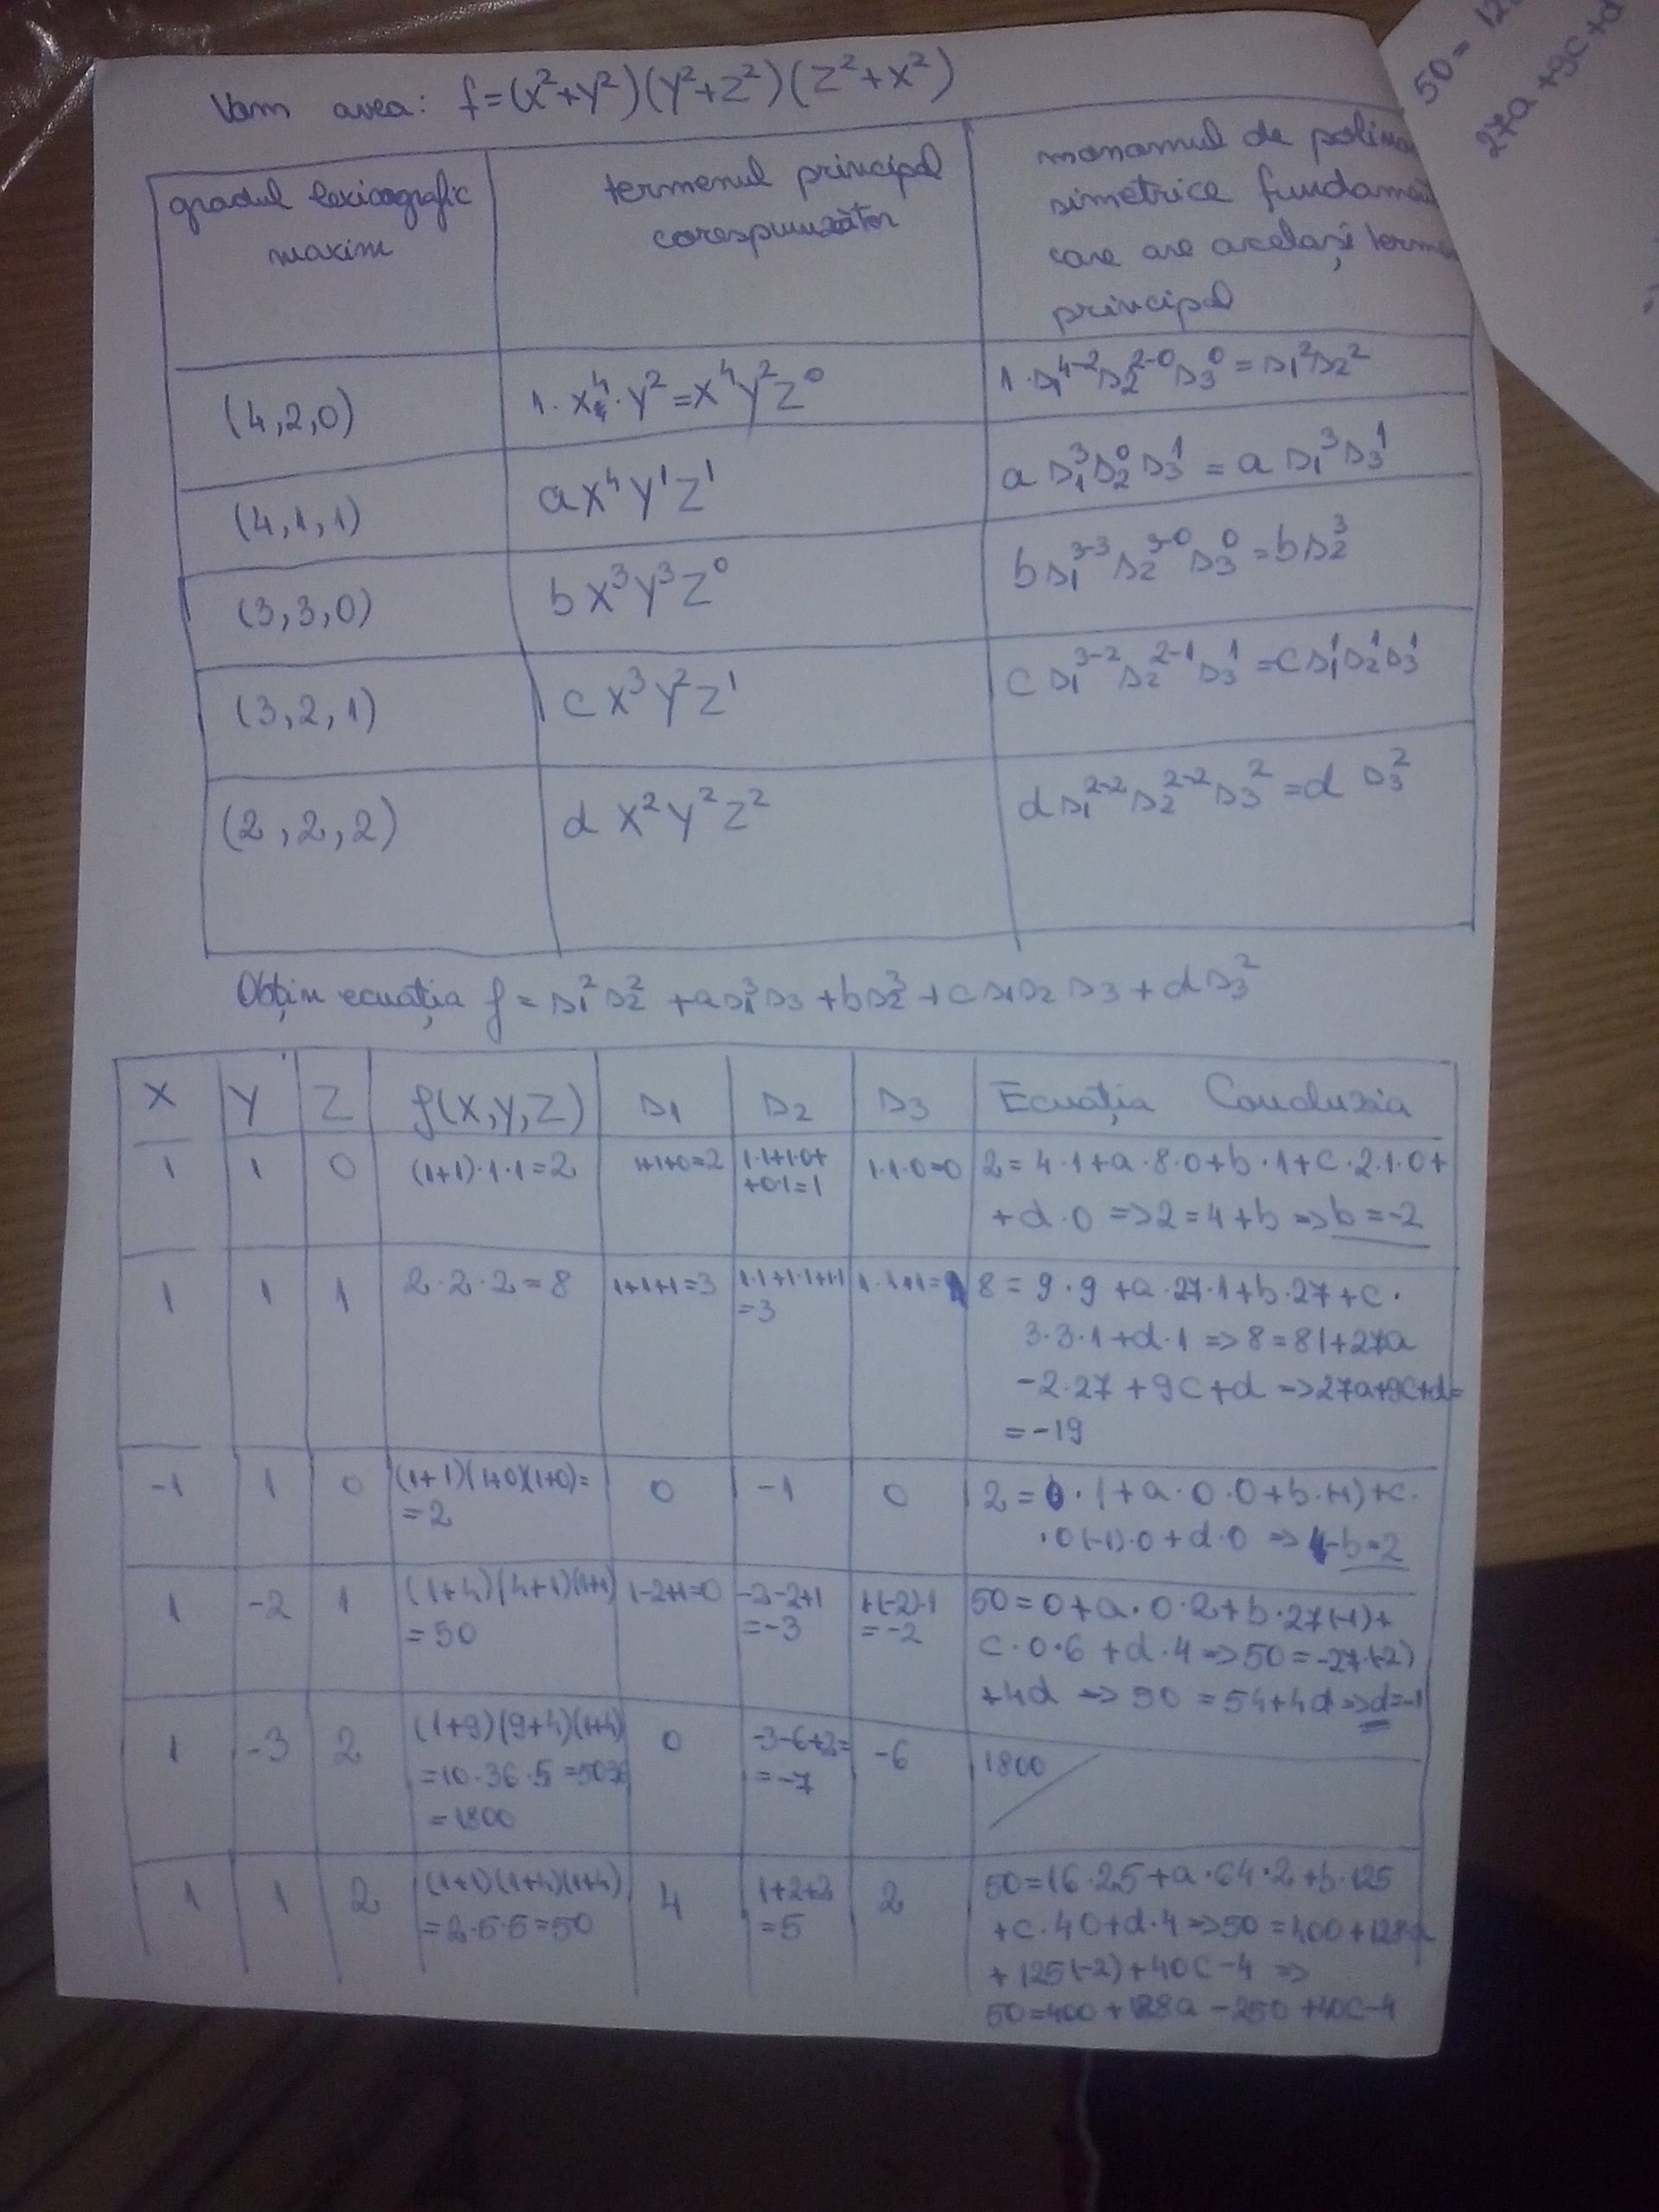 Vom avea: f=(x²+y²)(y²+z²)(z²+x²)
50= 12
27a +9c+d
gradul lexicografic
maxim
termenul principal
corespunzător
monomul de
simetrice
care are același
principal
(4,2,0) 1·x⁴·y²=x⁴y²z⁰ 1·s₁⁴⁻²s₂²⁻⁰s₃⁰=s₁²s₂²
(4,1,1) ax⁴y¹z¹ a s₁³s₂⁰s₃¹ = a s₁³s₃¹
(3,3,0) bx³y³z⁰ b s₁³⁻³s₂³⁻⁰s₃⁰=bs₂³
(3,2,1) cx³y²z¹ c s₁³⁻²s₂²⁻¹s₃¹=cs₁¹s₂¹s₃¹
(2,2,2) d x²y²z² d s₁²⁻²s₂²⁻²s₃²=d s₃²
Obțin ecuația f = s₁²s₂² +as₁³s₃ +bs₂³ +cs₁s₂s₃ + ds₃²
X Y Z f(X,Y,Z) s₁ s₂ s₃ Ecuația Concluzia
1 1 0 (1+1)·1·1=2 1+1+0=2 1·1+1·0+ 1·1·0=0 2=4·1+a·8·0+b·1+c·2·1·0+
+0·1=1 +d·0 =>2=4+b =>b=-2
1 1 1 2·2·2=8 1+1+1=3 1·1+1·1+1·1 8=9·9+a·27·1+b·27+c·
=3 3·3·1+d·1 =>8=81+27a
-2·27+9c+d =>27a+9c+d=
=-19
-1 1 0 (1+1)(1+0)(1+0)= 0 -1 0 2=0·1+a·0·0+b·(-1)+c·
=2 ·0(-1)·0+d·0 => -b=2
1 -2 1 (1+4)(4+1)(1+1) 1-2+1=0 -2-2+1 1(-2)·1 50=0+a·0·2+b·27(-1)+
=50 =-3 =-2 c·0·6+d·4=>50=-27·(-2)
+4d => 50=54+4d=>d=-1
1 -3 2 (1+9)(9+4)(1+4) 0 -3-6+2= -6 1800
=10·36·5=5036 =-7
=1800
1 1 2 (1+1)(1+4)(1+4) 4 1+2+2 2 50=16·25+a·64·2+b·125
=2·5·5=50 =5 +c·40+d·4=>50=400+128a
+125(-2)+40c-4 =>
50=400+128a-250+40c-4